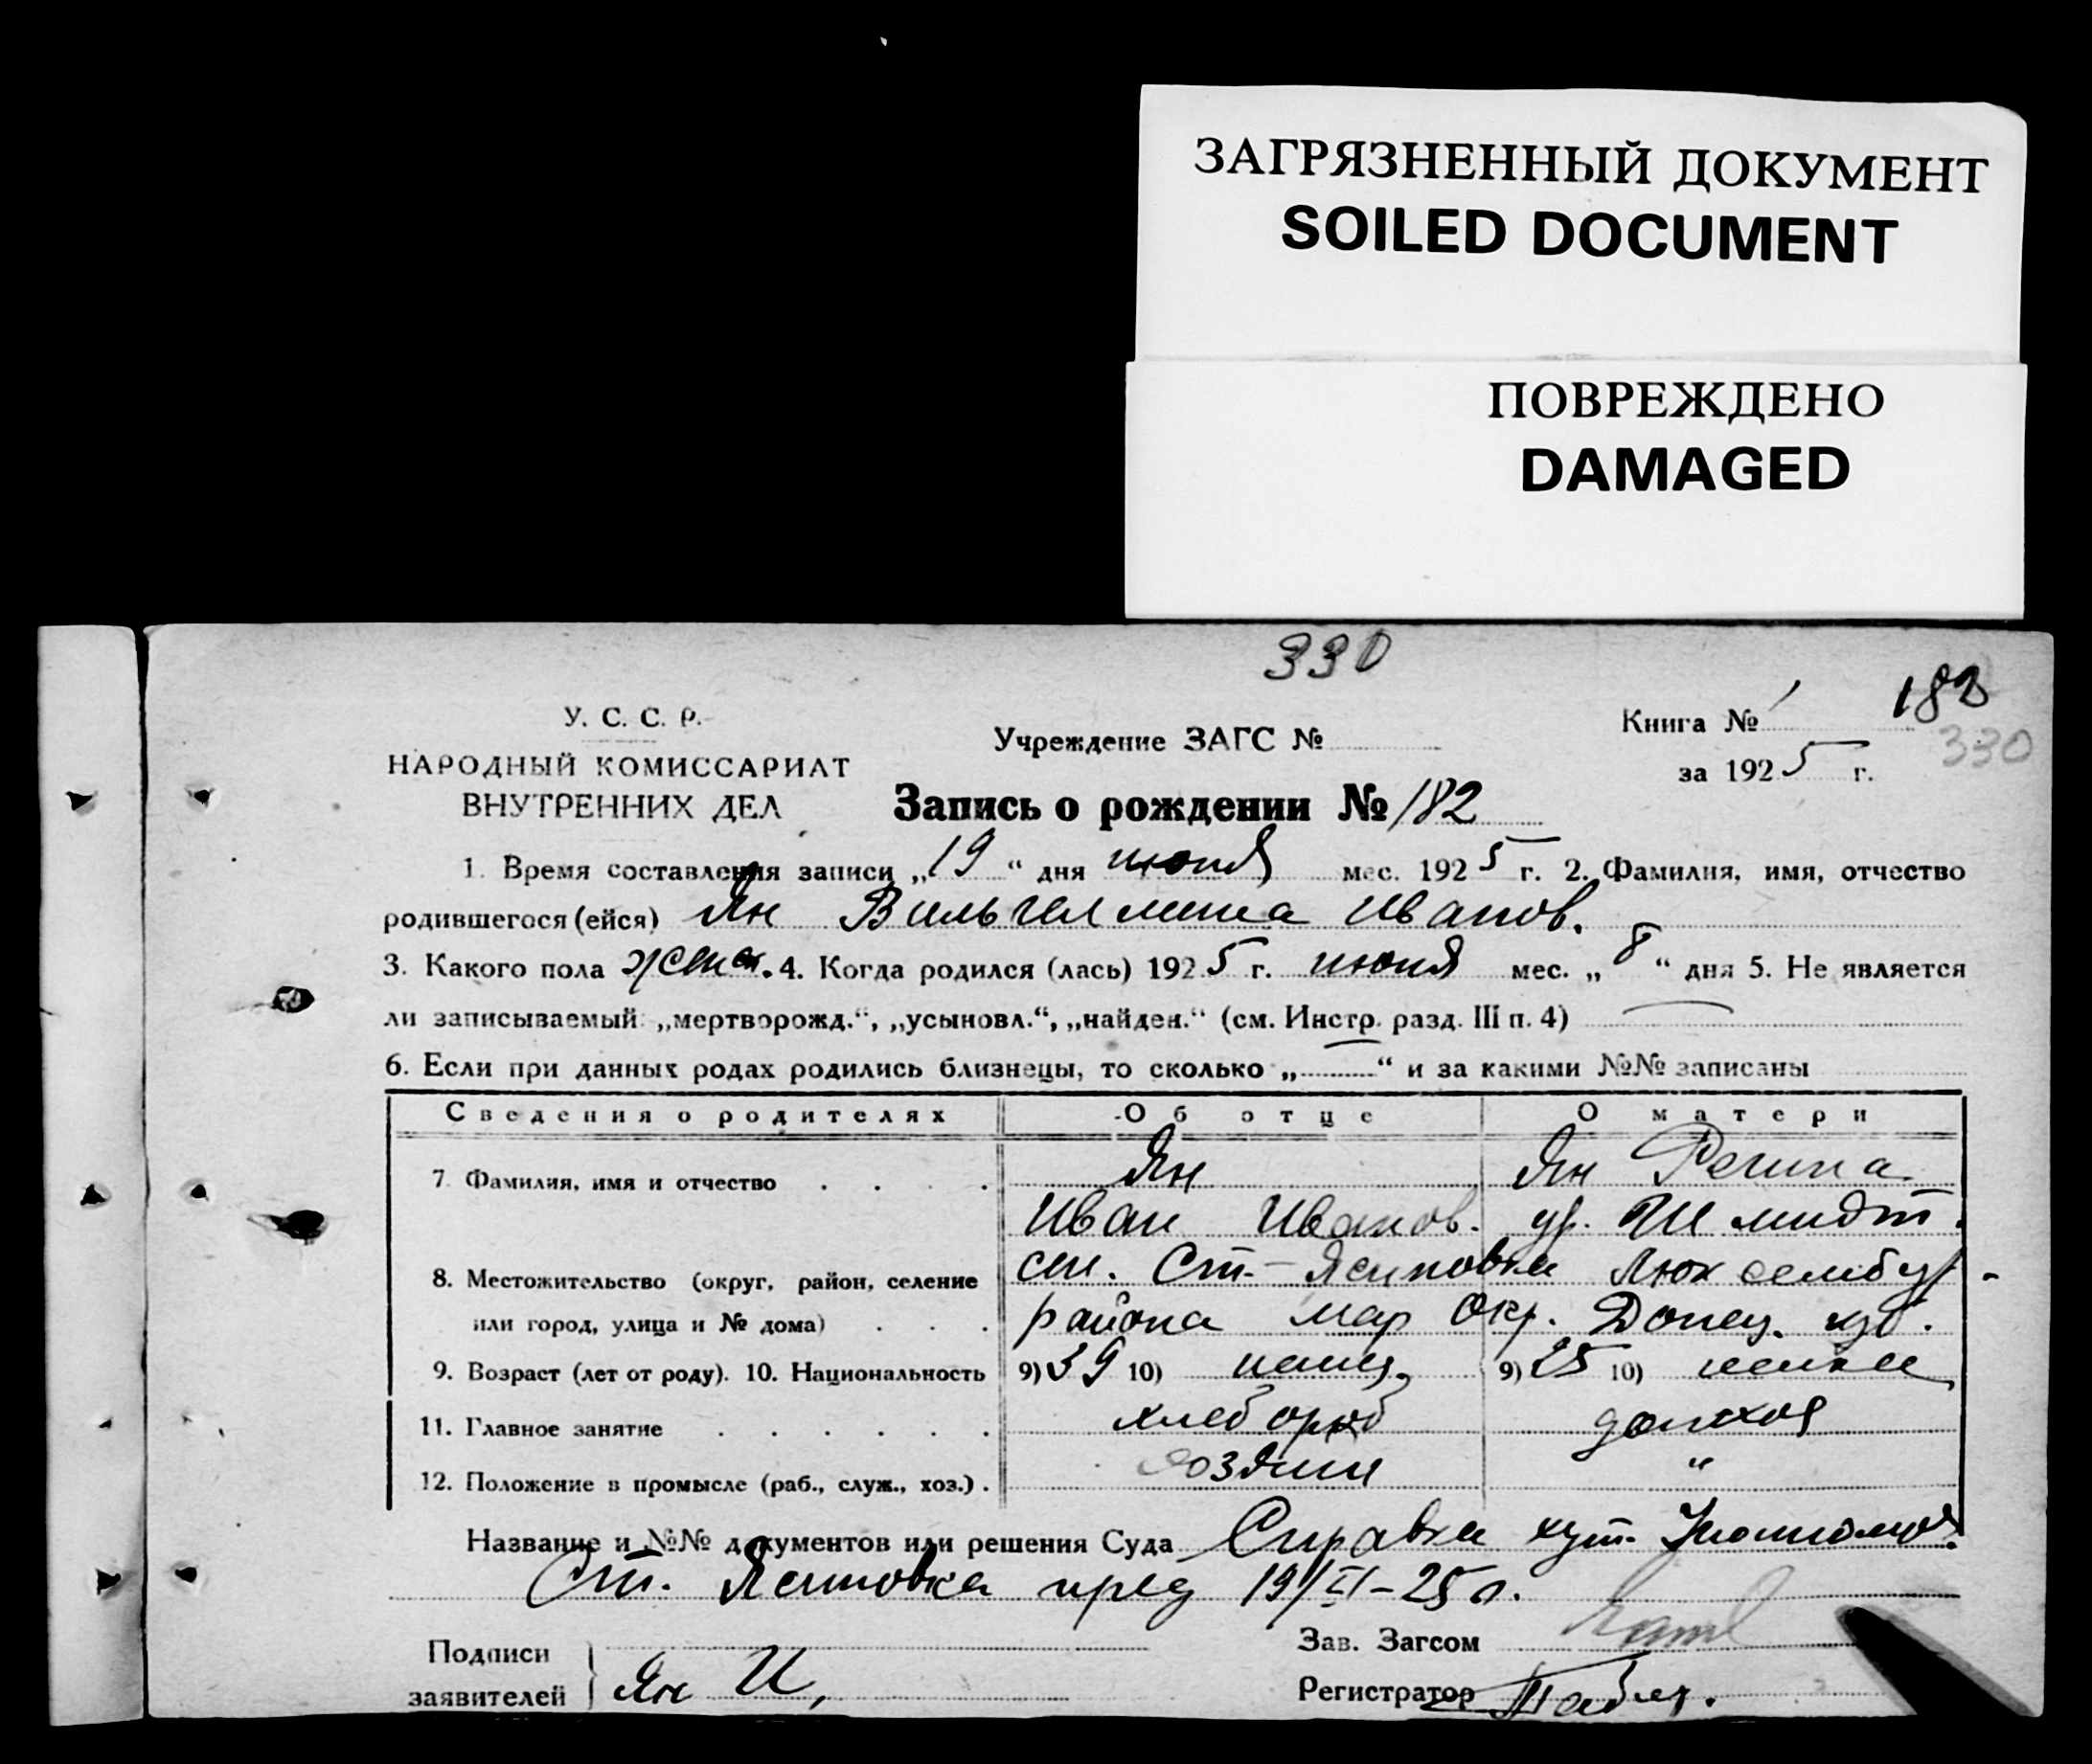 ЗАГРЯЗНЕННЫЙ ДОКУМЕНТ
SOILED DOCUMENT
ПОВРЕЖДЕНО
DAMAGED
330
У. С. С. Р.
НАРОДНЫЙ КОМИССАРИАТ
ВНУТРЕННИХ ДЕЛ
Учреждение ЗАГС №
Книга № 1 182
330
за 1925 г.
Запись о рождении № 182
1. Время составления записи „19“ дня июня мес. 1925 г. 2. Фамилия, имя, отчество
родившегося (ейся) Ян Вильгелмина Иванов.
3. Какого пола женск. 4. Когда родился (лась) 1925 г. июня мес. „8“ дня 5. Не является
ли записываемый „мертворожд.“, „усыновл.“, „найден.“ (см. Инстр. разд. III п. 4)
6. Если при данных родах родились близнецы, то сколько „—“ и за какими №№ записаны
Сведения о родителях Об отце О матери
7. Фамилия, имя и отчество Ян Ян Регина
Иван Иванов. ур. Шмидт.
8. Местожительство (округ, район, селение сел. Ст.-Ясиновка Люксембур-
или город, улица и № дома) района мар Окр. Донец. губ.
9. Возраст (лет от роду). 10. Национальность 9) 39 10) немец 9) 25 10) немка
11. Главное занятие хлебороб домхоз
12. Положение в промысле (раб., служ., хоз.) хозяин "
Название и №№ документов или решения Суда Справка хут.
Ст. Ясиновка пред 19/VI-25 г.
Подписи
заявителей Ян И,
Зав. Загсом
Регистратор